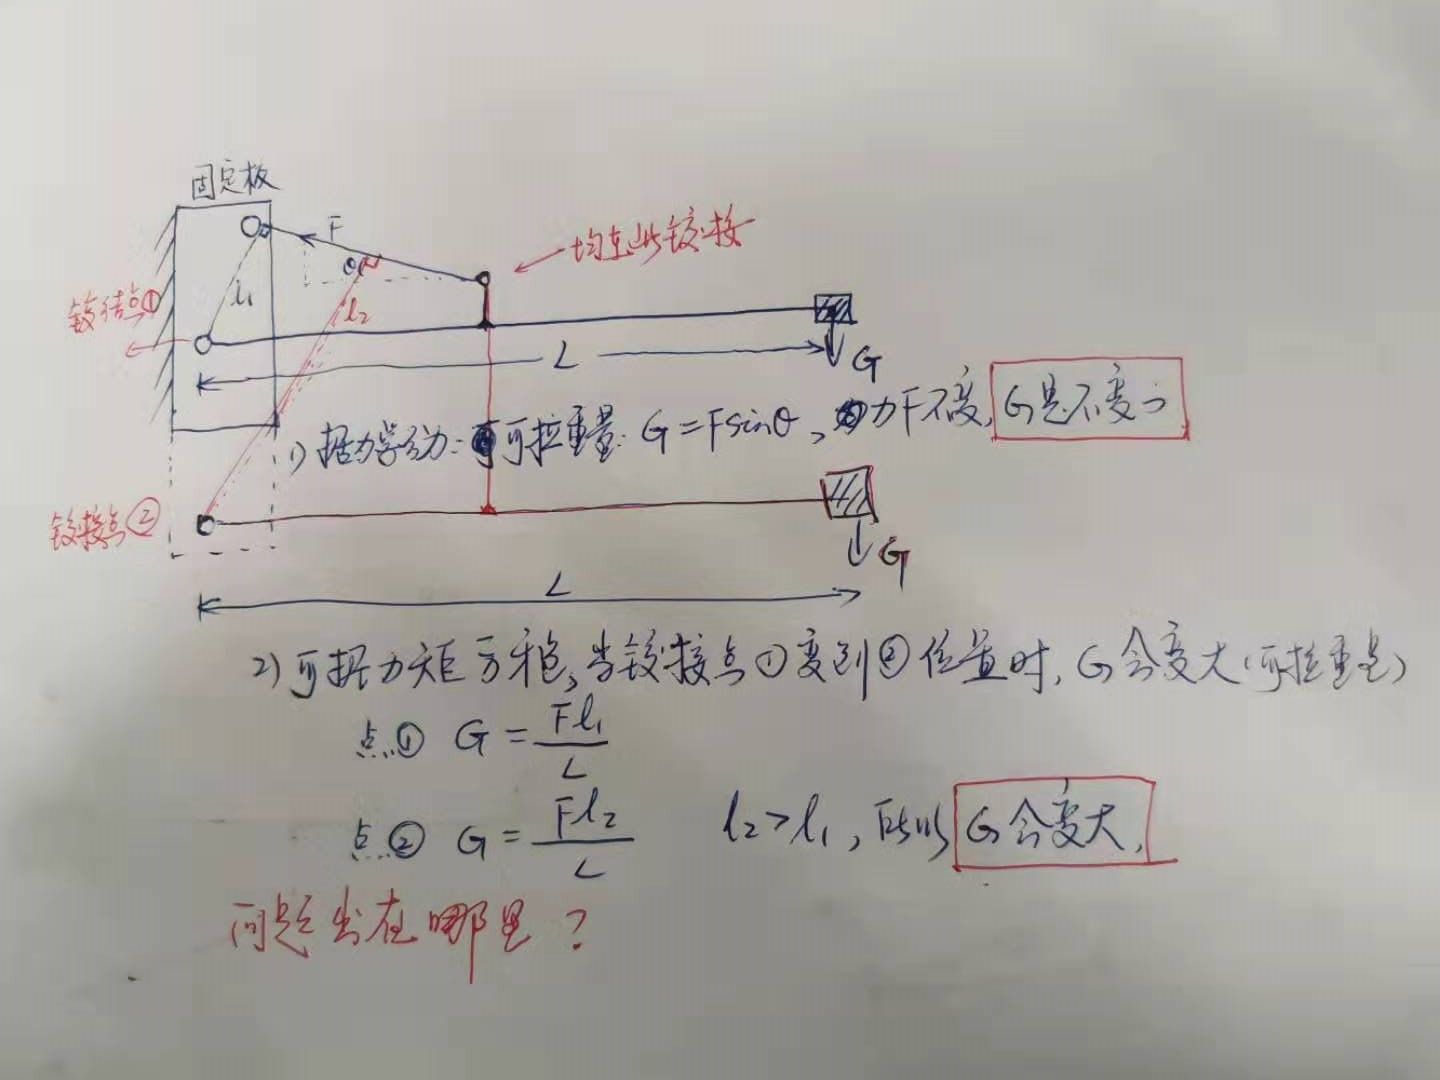 固定板
F
均在此铰接
θ
铰结点①
l₁
l₂
L
G
1) 据力学分力: 可拉重量: G = Fsinθ, 力F不变, G是不变的
铰接点②
G
L
2) 可据力矩方程, 当铰接点①变到②位置时, G会变大(可拉重量)
点① G = Fl₁/L
点② G = Fl₂/L l₂>l₁, 所以 G会变大,
问题出在哪里?